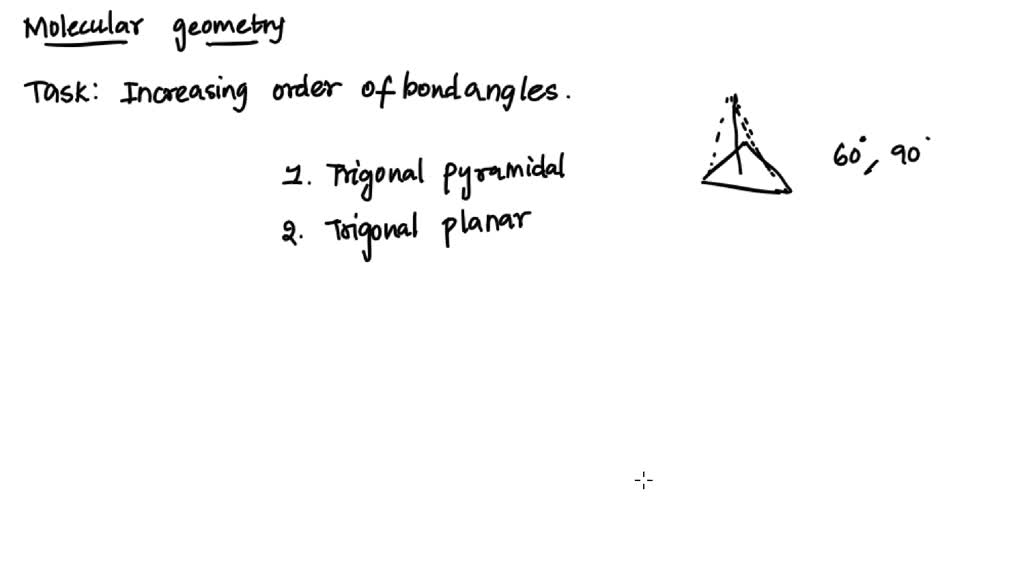 Molecular geometry
Task: Increasing order of bondangles.
1. Trigonal pyramidal
2. Trigonal planar
60°, 90°